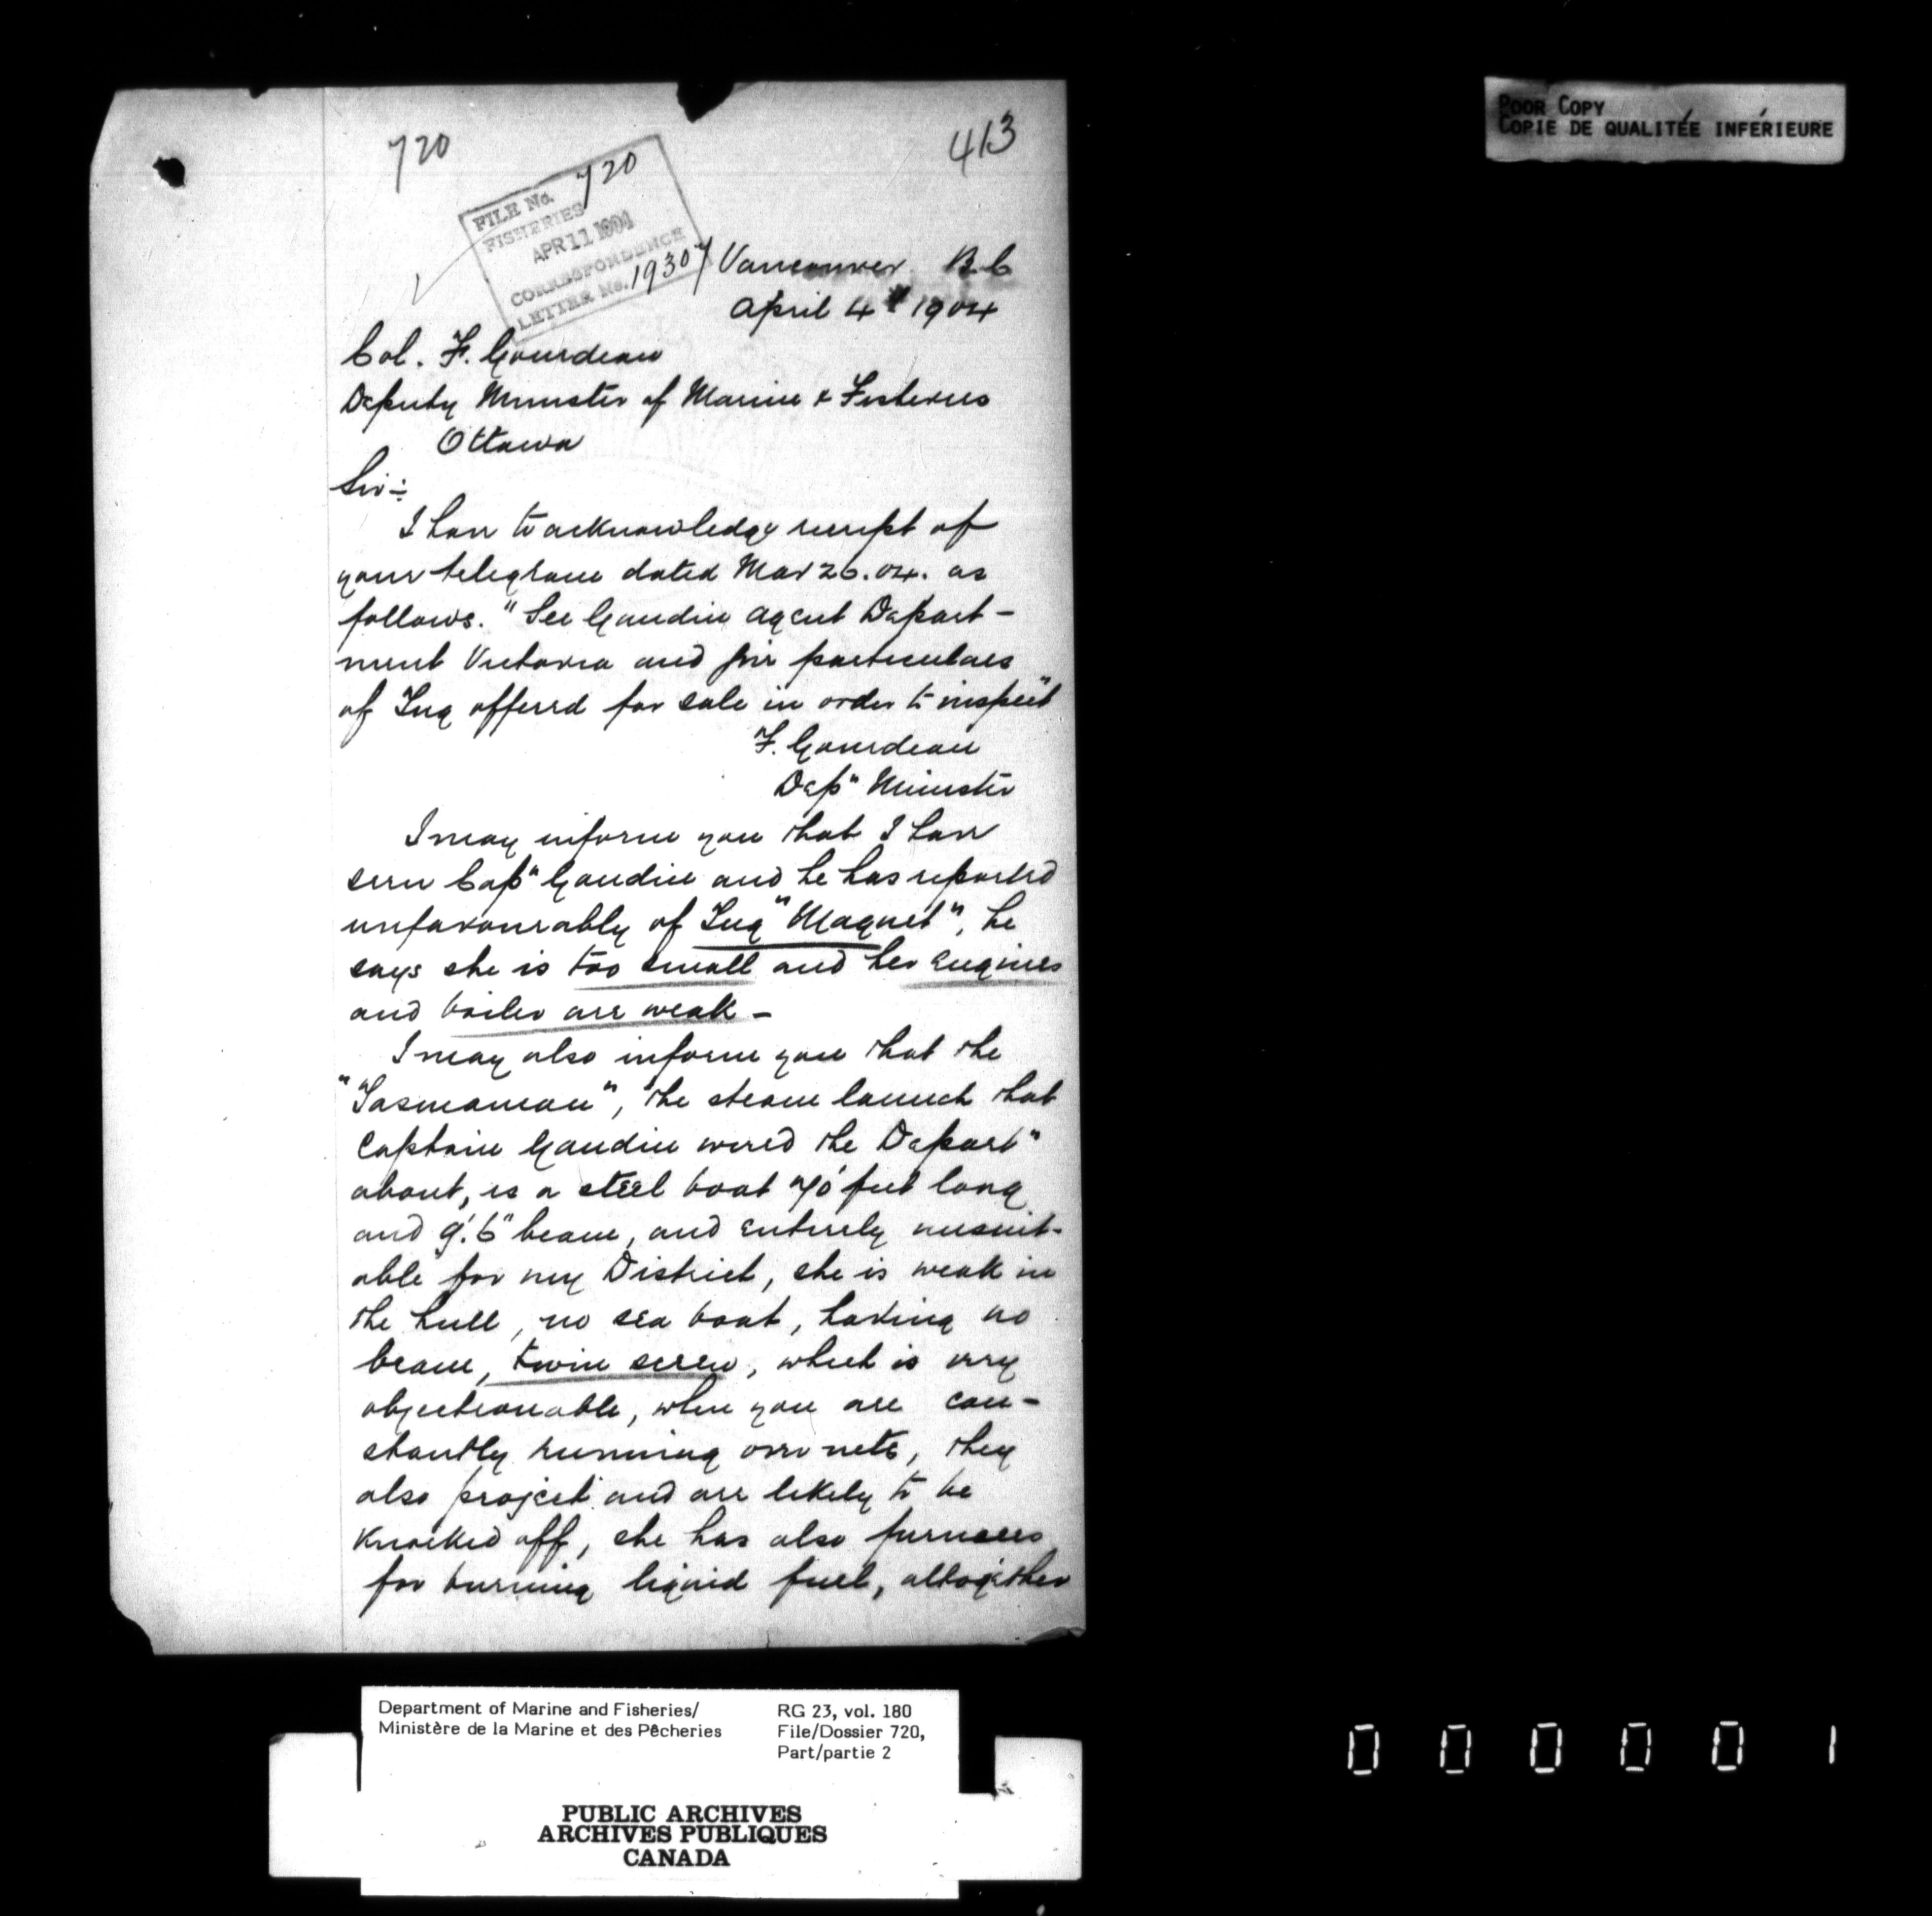 POOR COPY
COPIE DE QUALITÉE INFÉRIEURE
720
413
FILE No. 720
FISHERIES
APR 11 1904
CORRESPONDENCE
LETTER No. 19307
Vancouver B.C
April 4th 1904
Col. F. Gourdeau
Deputy Minister of Marine & Fisheries
Ottawa
Sir:-
I have to acknowledge receipt of
your telegram dated Mar 26.04. as
follows. "See Gaudin agent Depart-
ment Victoria and give particulars
of Tug offered for sale in order to inspect"
F. Gourdeau
Dep" Minister
I may inform you that I have
seen Cap" Gaudin and he has reported
unfavourably of Tug "Magnet", he
says she is too small and her Engines
and boiler are weak -
I may also inform you that the
"Tasmanian", the steam launch that
Captain Gaudin wired the Depart"
about, is a steel boat 70' feet long
and 9'.6" beam, and entirely unsuit-
able for my District, she is weak in
the hull, no sea boat, having no
beam, twin screw, which is very
objectionable, when you are con-
stantly running over nets, they
also project and are likely to be
Knocked off, she has also furnaces
for burning liquid fuel, altogether
Department of Marine and Fisheries/
Ministère de la Marine et des Pêcheries
RG 23, vol. 180
File/Dossier 720,
Part/partie 2
PUBLIC ARCHIVES
ARCHIVES PUBLIQUES
CANADA
000001